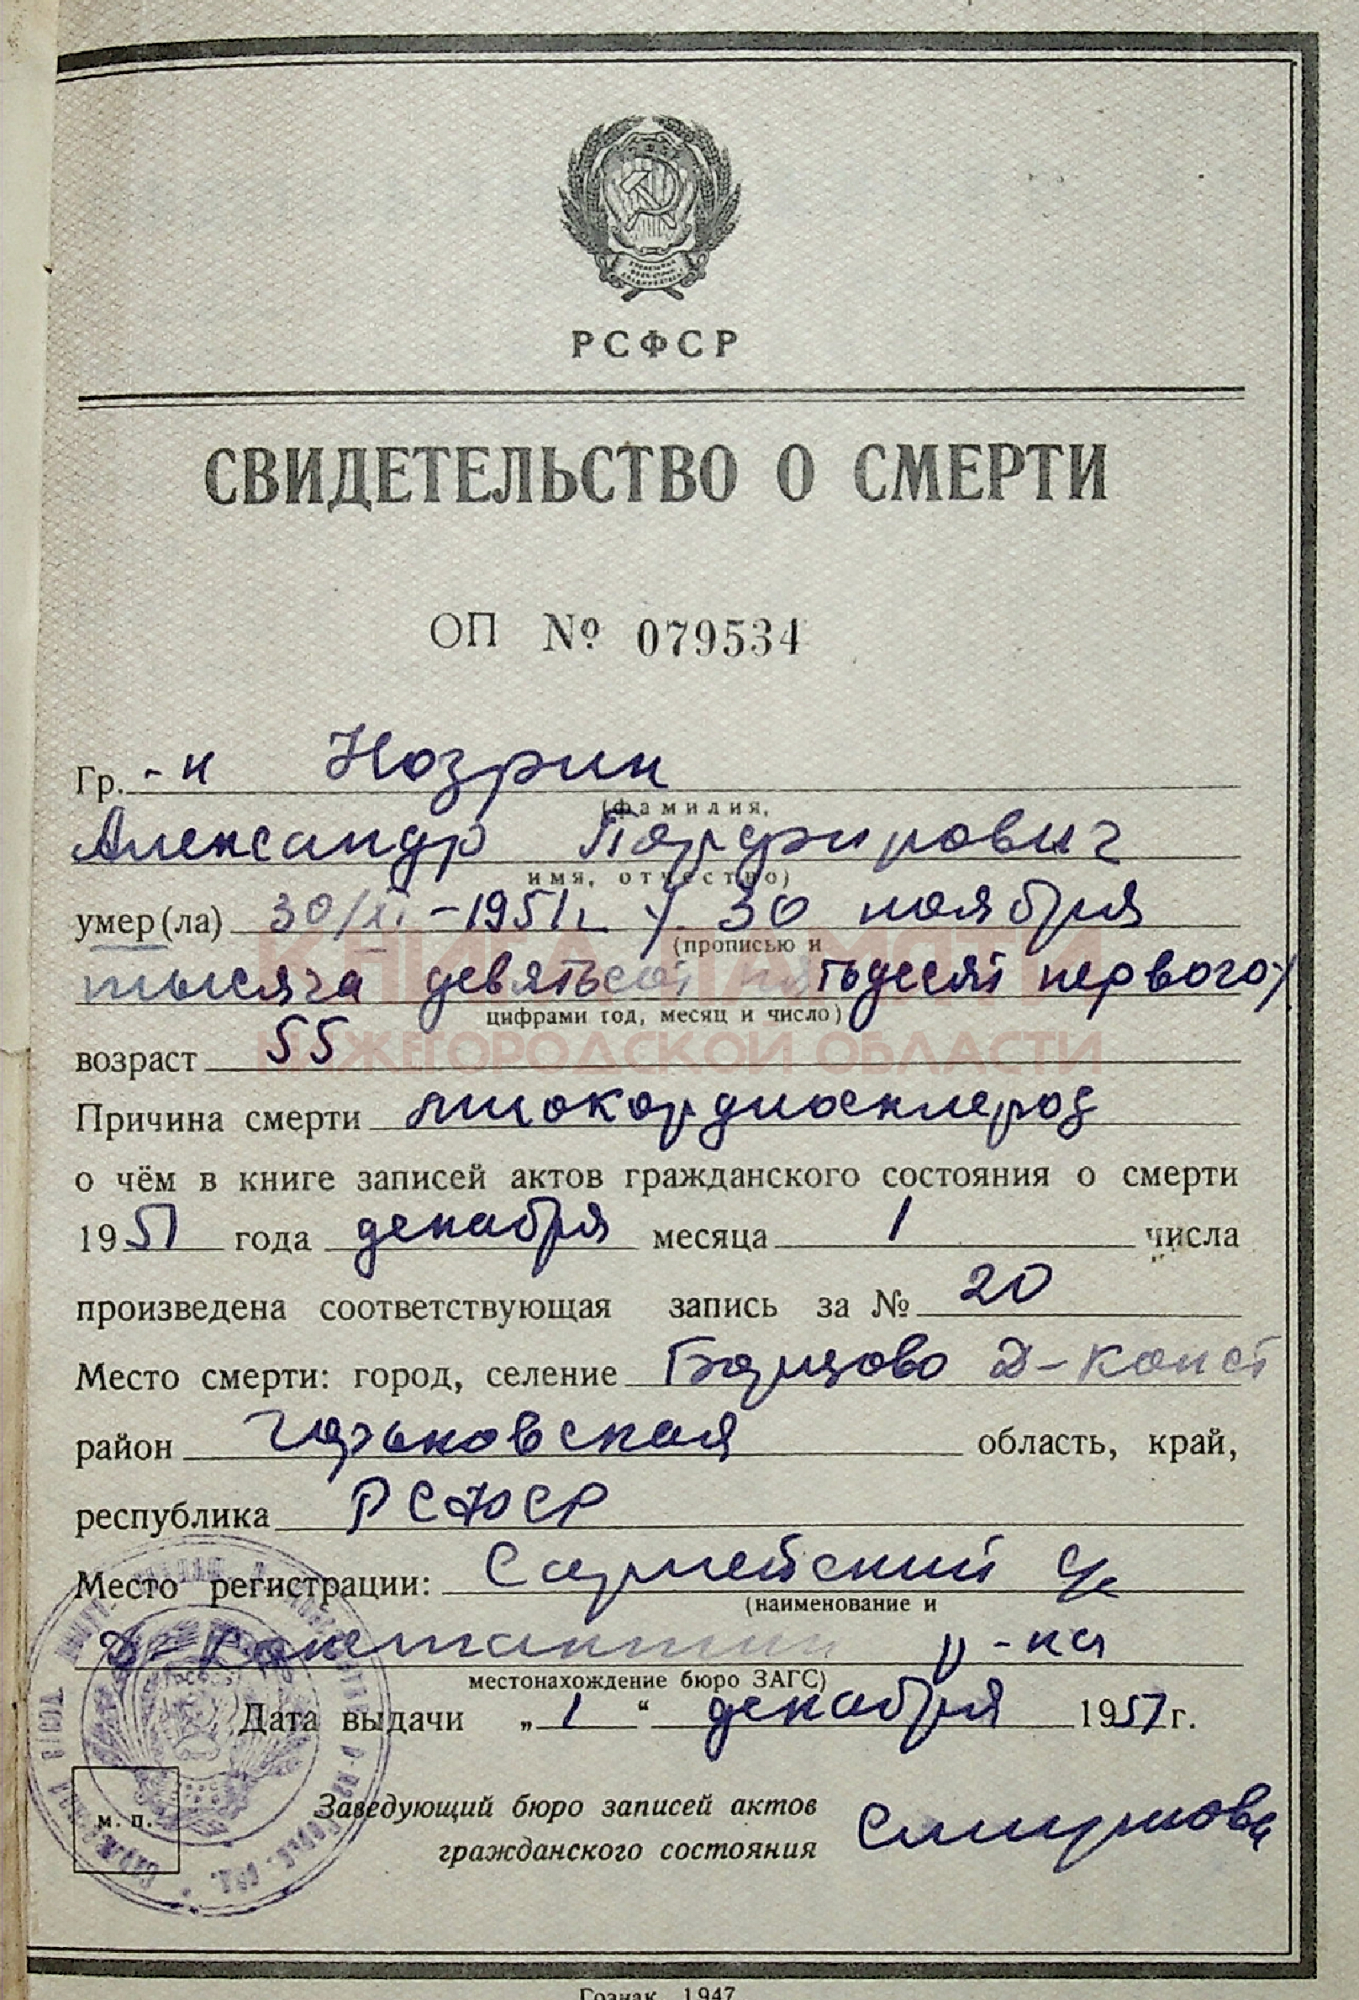 РСФСР
СВИДЕТЕЛЬСТВО О СМЕРТИ
ОП № 079534
Гр. -н Нозрин
(фамилия,
Александр Парфирович
имя, отчество)
умер(ла) 30/XI-1951г. 30 ноября
(прописью и
тысяча девятьсот пятьдесят первого
цифрами год, месяц и число)
КНИГА ПАМЯТИ
НИЖЕГОРОДСКОЙ ОБЛАСТИ
возраст 55
Причина смерти миокордиосклероз
о чём в книге записей актов гражданского состояния о смерти
1951 года декабря месяца 1 числа
произведена соответствующая запись за № 20
Место смерти: город, селение Борцово Д-Конст
район Горьковская область, край,
республика РСФСР
Место регистрации: Сарлейский
(наименование и
Д-Константин р-на
местонахождение бюро ЗАГС)
Дата выдачи „ 1 “ декабря 1951 г.
Заведующий бюро записей актов
гражданского состояния Смирнова
м. п.
Гознак. 1947.